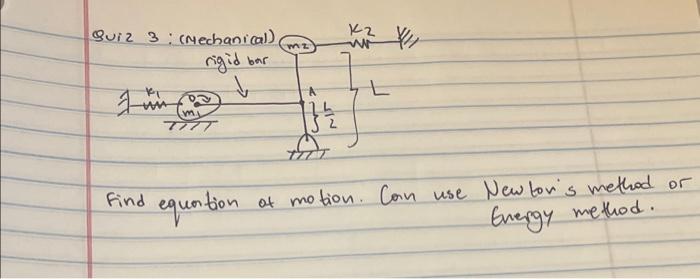 Quiz 3 : (Mechanical)
m2
K2
rigid bar
K1
m1
A
L/2
L
Find equation of motion. Can use Newton's method or
Energy method.